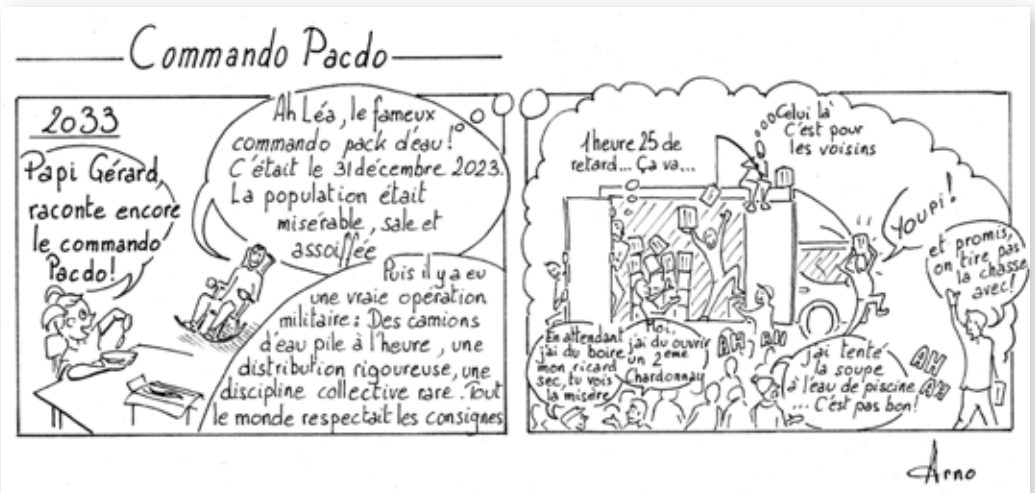 Commando Pacdo
2033
Papi Gérard,
raconte encore
le commando
Pacdo!
Ah Léa, le fameux
commando pack d'eau!
C'était le 31 décembre 2023.
La population était
misérable, sale et
assoiffée
Puis il y a eu
une vraie opération
militaire: Des camions
d'eau pile à l'heure, une
distribution rigoureuse, une
discipline collective rare. Tout
le monde respectait les consignes
1heure 25 de
retard... Ça va...
Celui là
C'est pour
les voisins
Youpi!
et promis,
on tire pas
la chasse
avec!
En attendant
j'ai du boire
mon ricard
sec, tu vois
la misère
Moi,
j'ai du ouvrir
un 2eme
Chardonnay
AH AH
j'ai tenté
la soupe
à l'eau de piscine
... C'est pas bon!
AH
AH
Arno